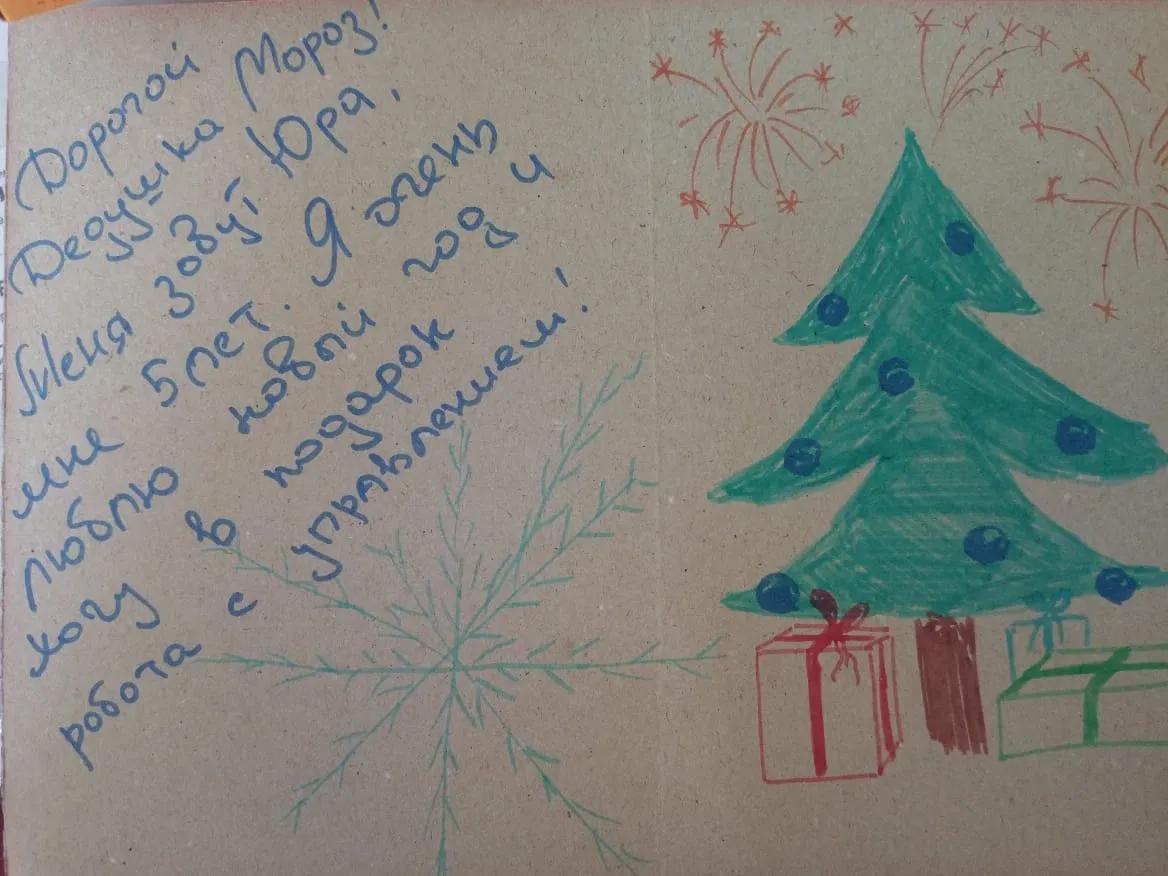 Дорогой
Дедушка Мороз!
Меня зовут Юра,
мне 5 лет. Я очень
люблю новый год и
хочу в подарок
робота с управлением!